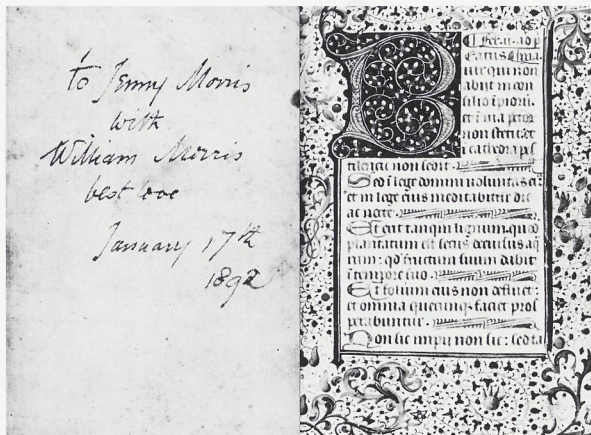 to Jenny Morris
with
William Morris
best love
January 17th
1892
B
eatus
vir qui non
abiit in con
silio
non stetit et
i cathedra
non sedit.
Sed i lege domini
et in lege eius meditabitur die
ac nocte.
Et erit tanqm lignum quod
plantatum est secus decursus aq
rum: qd fructum suum dabit
i tempore suo.
Et folium eius non defluet:
et omnia quecunqz faciet pros
perabuntur.
Non sic impii non sic: sed ta